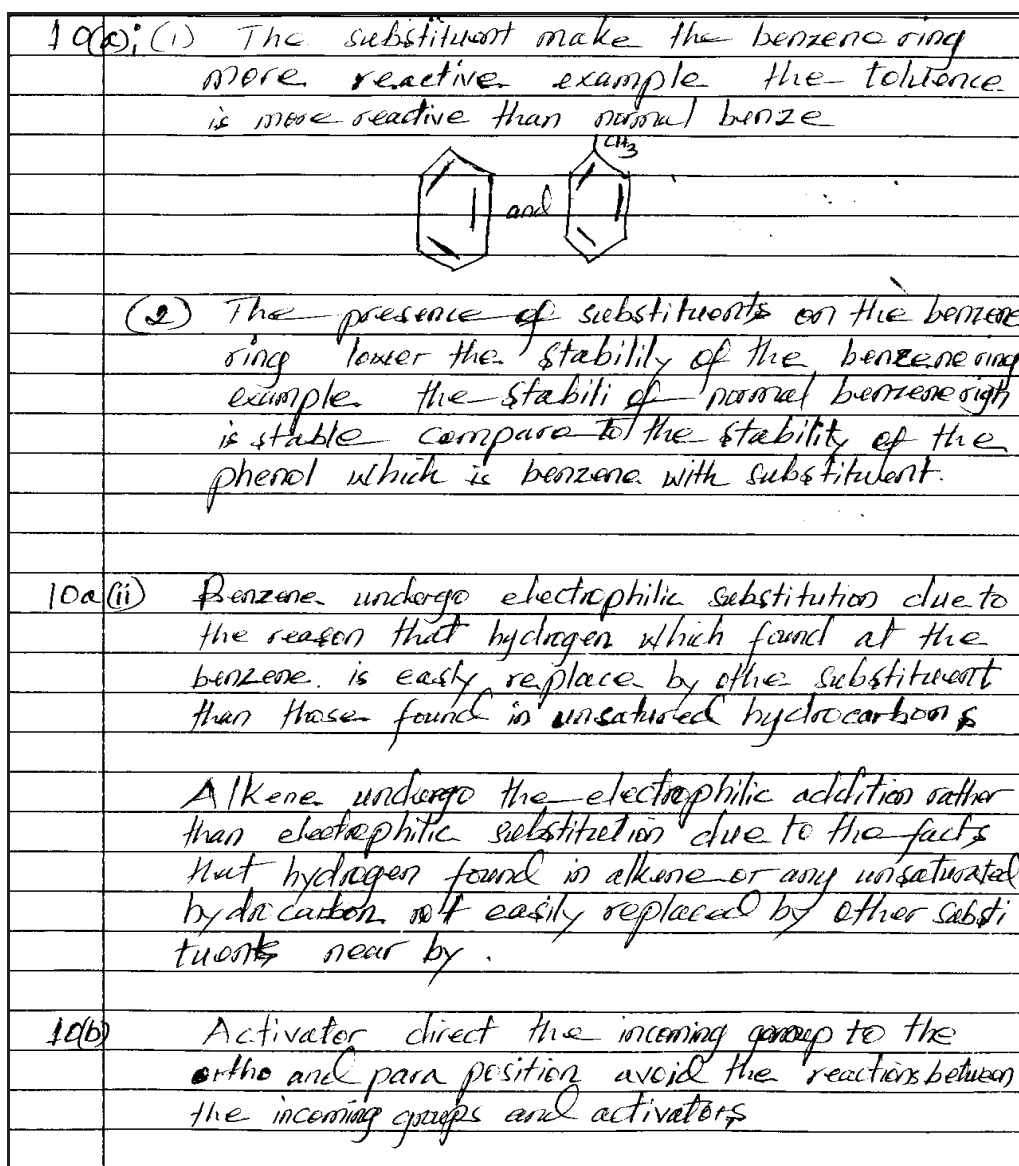 10(a); (i) The substituent make the benzene ring
more reactive example the toluence
is more reactive than normal benze
CH3
and
(2) The presence of substituents on the benzene
ring lower the stability of the benzene ring
example the stabili of normal benzene righ
is stable compare to the stability of the
phenol which is benzene with substituent.
10a(ii) Benzene undergo electrophilic substitution due to
the reason that hydrogen which found at the
benzene. is easly replace by othe substituent
than those found in unsatured hydrocarbons
Alkene undergo the electrophilic addition rather
than electrophilic substitution due to the facts
that hydrogen found in alkene or any unsaturated
hydrocarbon not easily replaced by other substi
tuents near by.
10(b) Activator direct the incoming group to the
ortho and para position avoid the reactions between
the incoming groups and activators